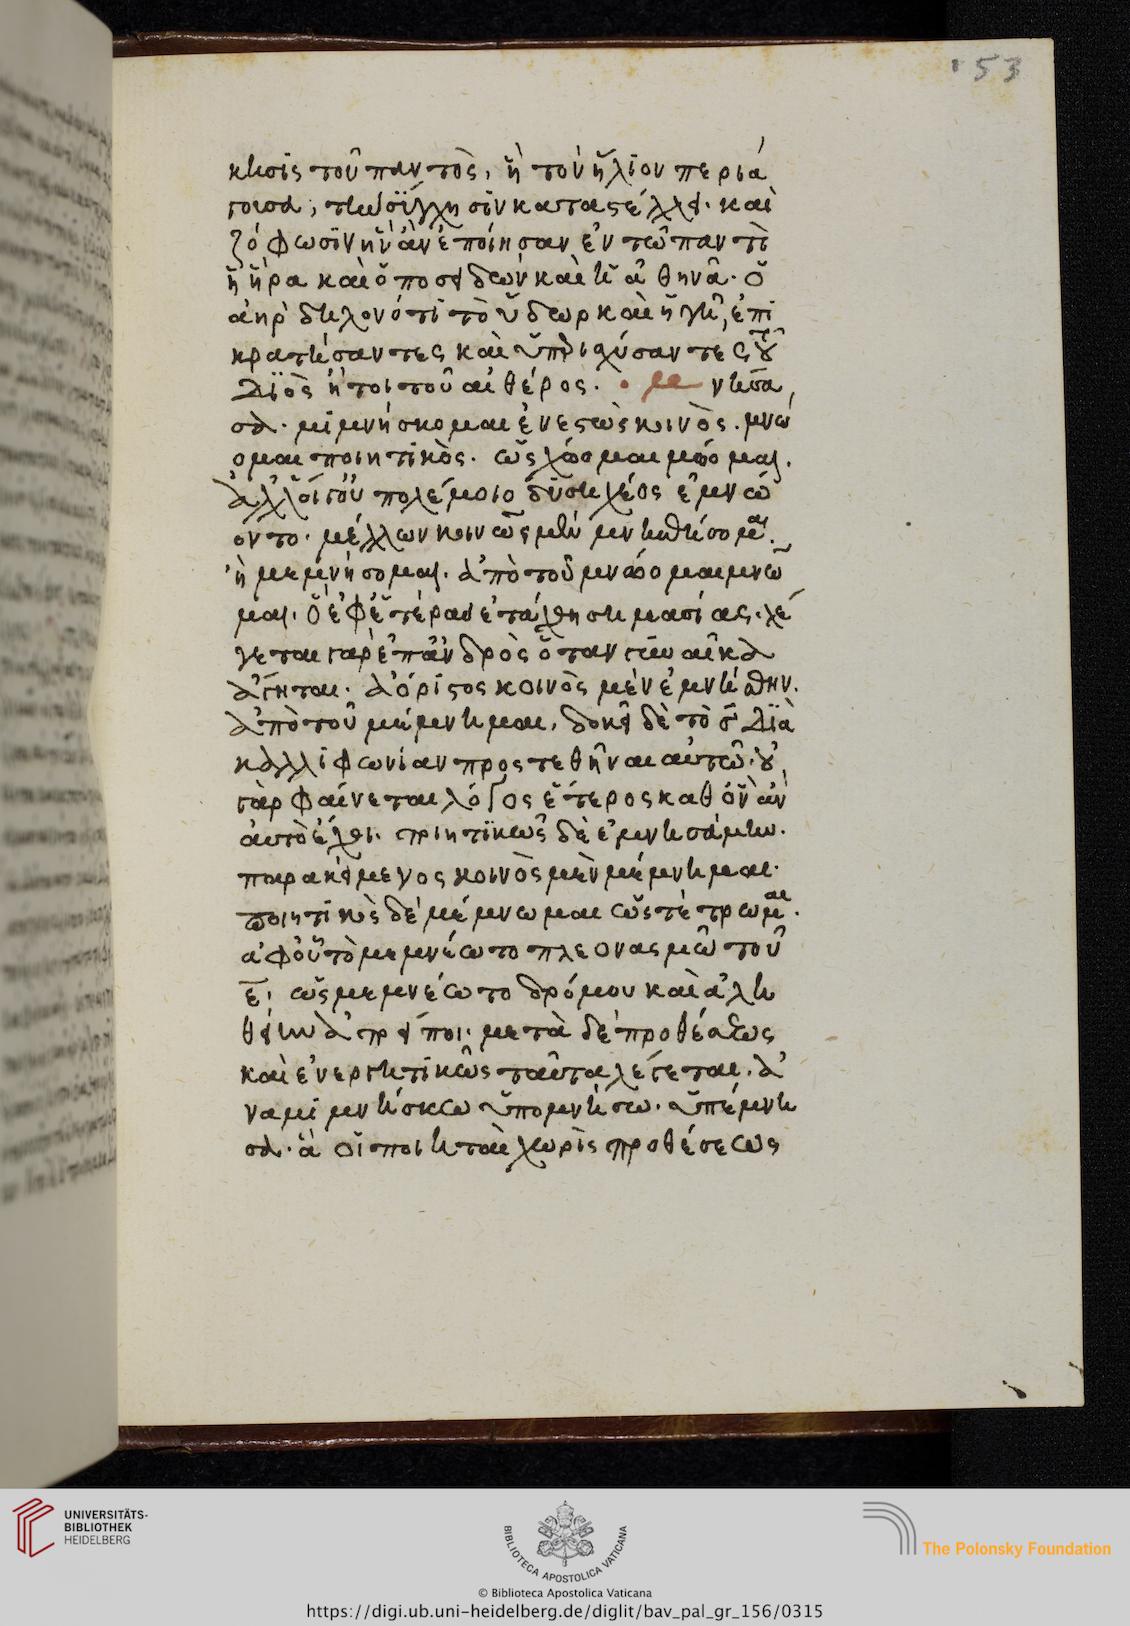 153
κησις τοῦ παντὸς, ἢ τὸν ἥλιον περιά
γουσα, τὴν σύγχησιν καταστέλλει· καὶ
ζόφωσιν ἣν ἂν ἐποίησαν ἐν τῷ παντὶ
ἡ ἥρα καὶ ὁ ποσειδεῶν καὶ ἡ ἀθηνᾶ· ὁ
ἀὴρ δηλονότι τὸ ὕδωρ καὶ ἡ γῆ, ἐπι
κρατήσαντες καὶ ὑπερισχύσαντες τοῦ
Διὸς ἤτοι τοῦ αἰθέρος. μνήσα
σα· μιμνήσκομαι ἐνεστὼς κοινὸς. μνώ
ομαι ποιητικὸς. ὡς μνώομαι.
ἀλλ' οἵ γ' οὐ πολέμοιο δυσηχέος ἐμνώ
οντο· μέλλων κοινῶς μὲν μνηθήσομαι.
ἢ μεμνήσομαι. ἀπὸ τοῦ μνάομαι μνῶ
μαι. ἑτέρας σημασίας. λέ
γεται γὰρ ἐπ' ἀνδρὸς ὅταν γυναῖκα
ἄγηται. ἀόριστος κοινὸς μὲν ἐμνήσθην.
ἀπὸ τοῦ μέμνημαι. δοκεῖ δὲ τὸ σ Διὰ
καλλιφωνίαν προστεθῆναι αὐτῷ. οὐ
γὰρ φαίνεται λόγος ἕτερος καθ' ὃν ἂν
αὐτὸ ἔχοι. ποιητικῶς δὲ ἐμνησάμην.
παρακείμενος κοινὸς μὲν μέμνημαι.
ποιητικὸς δὲ μέμνωμαι ὡς τέτρωμαι.
ἀφ' οὗ τὸ μεμνέωτο πλεονασμῷ τοῦ
ε, ὡς μεμνέωτο δρόμου καὶ ἀλη
θείην ἀποείποι. μετὰ δὲ προθέσεως
καὶ ἐνεργητικῶς ταῦτα λέγεται. ἀ
ναμιμνήσκω ὑπομνήσω. ὑπέμνη
σα. ἃ οἱ ποιηταὶ χωρὶς προθέσεως
UNIVERSITÄTS-
BIBLIOTHEK
HEIDELBERG
BIBLIOTECA APOSTOLICA VATICANA
The Polonsky Foundation
© Biblioteca Apostolica Vaticana
https://digi.ub.uni-heidelberg.de/diglit/bav_pal_gr_156/0315